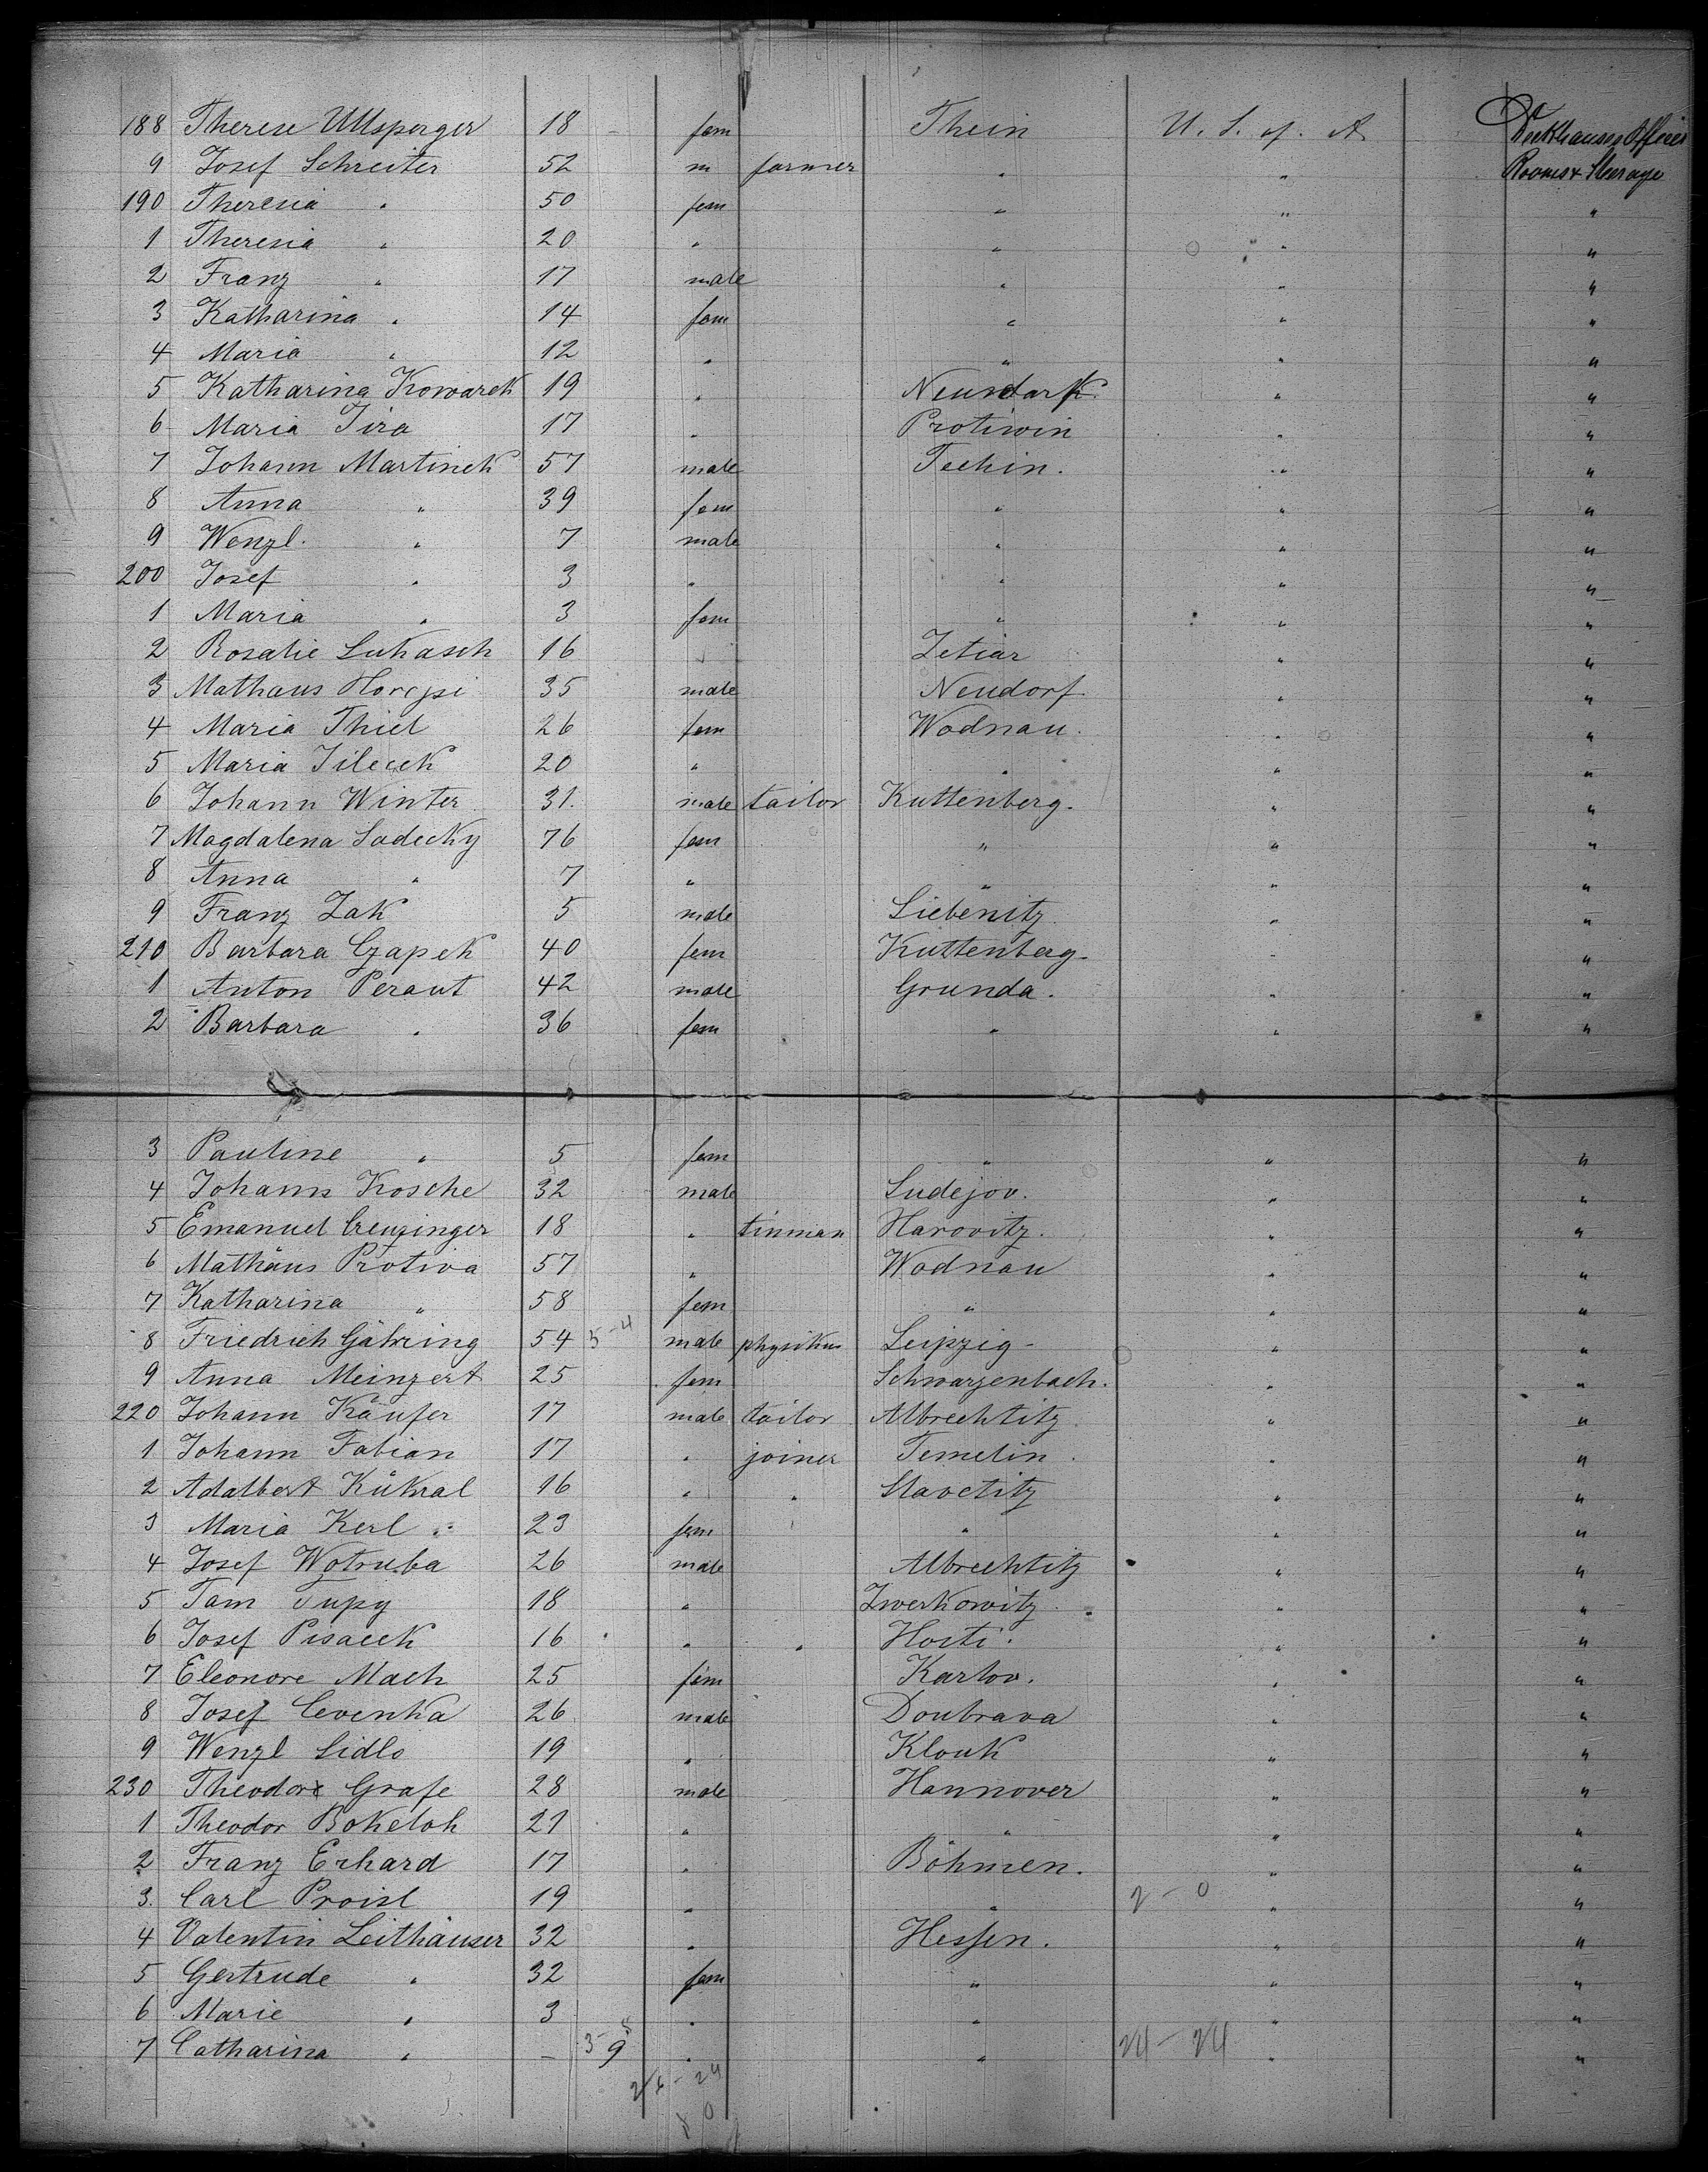 188 Therese Ullsperger 18 fem Thein U. S. of. A Deckhouses Officer
9 Josef Schreiter 52 m farmer " " Rooms & Steerage
190 Theresia " 50 fem " " "
1 Theresia " 20 " " " "
2 Franz " 17 male " " "
3 Katharina " 14 fem " " "
4 Maria " 12 " " " "
5 Katharina Kowarek 19 " Neundarf. " "
6 Maria Tira 17 " Protiwin " "
7 Johann Martinek 57 male Techin. " "
8 Anna " 39 fem " " "
9 Wenzl. " 7 male " " "
200 Josef " 3 " " " "
1 Maria " 3 fem " " "
2 Rosalie Lukasch 16 Zetiar " "
3 Mathaus Horejsi 35 male Neudorf. " "
4 Maria Thiel 26 fem Wodnau. " "
5 Maria Jilecek 20 " " " "
6 Johann Winter 31. male tailor Kuttenberg. " "
7 Magdalena Sadecky 76 fem " " "
8 Anna " 7 " " " "
9 Franz Zak 5 male Liebenitz " "
210 Barbara Czapek 40 fem Kuttenberg. " "
1 Anton Peraut 42 male Grunda. " "
2 Barbara " 36 fem " " "
3 Pauline " 5 fem " " "
4 Johann Kosche 32 male Sudejov. " "
5 Emanuel Creuzinger 18 " tinman Harovitz. " "
6 Mathäus Protiva 57 " Wodnau " "
7 Katharina " 58 fem " " "
8 Friedrich Gähring 54 5-4 male physikus Leipzig " "
9 Anna Meinzert 25 fem Schwarzenbach. " "
220 Johann Käufer 17 male tailor Albrechtitz " "
1 Johann Fabian 17 " joiner Temelin. " "
2 Adalbert Kukral 16 " " Slavetitz " "
3 Maria Kerl 23 fem " " "
4 Josef Wotruba 26 male Albrechtitz " "
5 Tam Tupy 18 " Zwerkowitz. " "
6 Josef Pisacek 16 " " Hosti. " "
7 Eleonore Mach 25 fem Karlov. " "
8 Josef Cevenka 26 male Doubrava " "
9 Wenzl Sidlo 19 " Klouk " "
230 Theodor Grafe 28 male Hannover " "
1 Theodor Bokeloh 21 " " " "
2 Franz Erhard 17 " Böhmen. " "
3. Carl Proisl 19 " " 2-0 " "
4 Valentin Leithäuser 32 " Hessen. " "
5 Gertrude " 32 fem " " "
6 Marie " 3 " " " "
7 Catharina " - 9 " " 24-24 " "